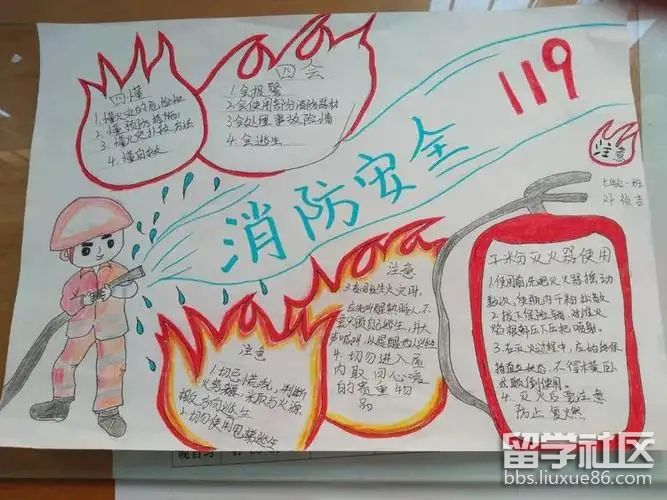 四懂
1.懂火灾的危险性
2.懂预防措施
3.懂火灾扑救方法
4.懂自救
四会
1.会报警
2.会使用部份消防器材
3.会处理事故险情
4.会逃生
119
消防安全
注意
七(1)一班
注意
1.切忌慌乱,判断
火势
采取与火源
相反方向逃生
2.切勿使用
逃生
注意
3.夜间发生火灾时,
应先叫醒熟睡人,不
要只顾自己逃生,并大
声喊叫,以提醒他人逃生
4.切勿进入屋
内取回心爱
的贵重物
品
干粉灭火器使用
1.使用前,先把灭火器摇动
数次,使瓶内干粉松散
2.拔下保险销,对准火
焰根部压下压把喷射.
3.在灭火过程中,应始终保
持直立状态,不得横卧
或颠倒使用.
4.灭火后要注意
防止复燃
留学社区
bbs.liuxue86.com